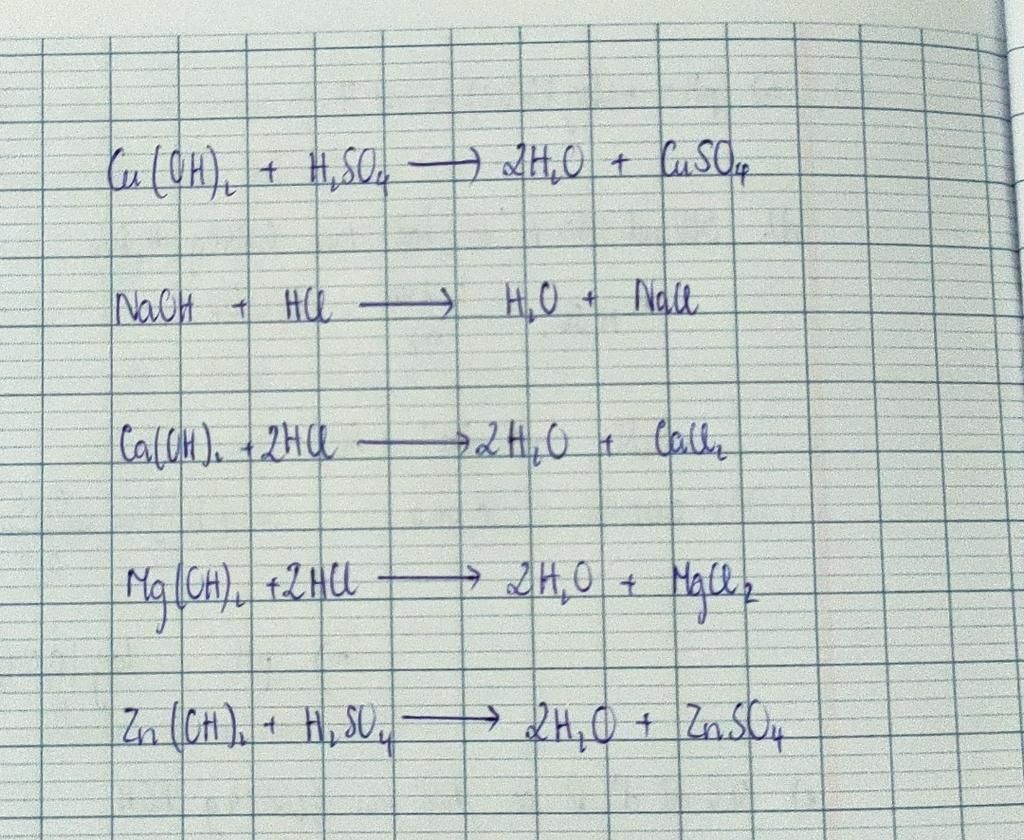 Cu(OH)₂ + H₂SO₄ ⟶ 2H₂O + CuSO₄
NaOH + HCl ⟶ H₂O + NaCl
Ca(OH)₂ + 2HCl ⟶ 2H₂O + CaCl₂
Mg(OH)₂ + 2HCl ⟶ 2H₂O + MgCl₂
Zn(OH)₂ + H₂SO₄ ⟶ 2H₂O + ZnSO₄